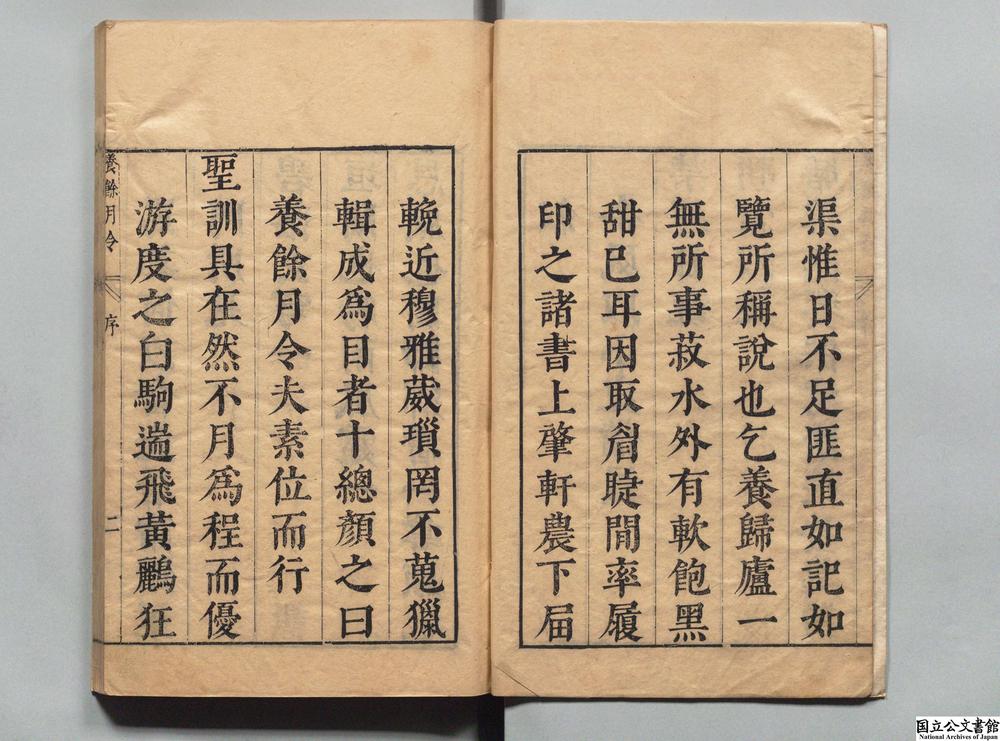 渠惟日不足匪直如記如
覽所稱說也乞養歸廬一
無所事菽水外有軟飽黑
甜已耳因取眉睫間率履
印之諸書上肇軒農下届
輓近穆雅葳瑣罔不蒐獵
輯成爲目者十總顏之曰
養餘月令夫素位而行
聖訓具在然不月爲程而優
游度之白駒遄飛黃鸝狂
養餘月令 序 二
国立公文書館
National Archives of Japan